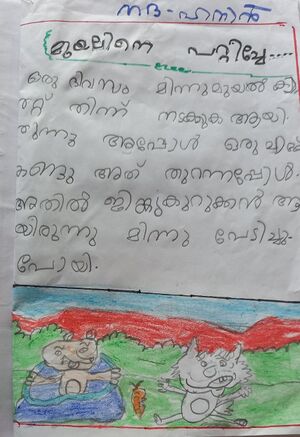 നദ-ഫനാൻ
മുയലിനെ പറ്റിച്ചേ.....
ഒരു ദിവസം മിന്നുമുയൽ ക്യാ
രറ്റ് തിന്ന് നടക്കുക ആയി.
രുന്നു അപ്പോൾ ഒരു
കണ്ടു അത് തുറന്നപ്പോൾ.
അതിൽ ജിക്കുകുറുക്കൻ ആ
യിരുന്നു മിന്നു പേടിച്ചു
പോയി.